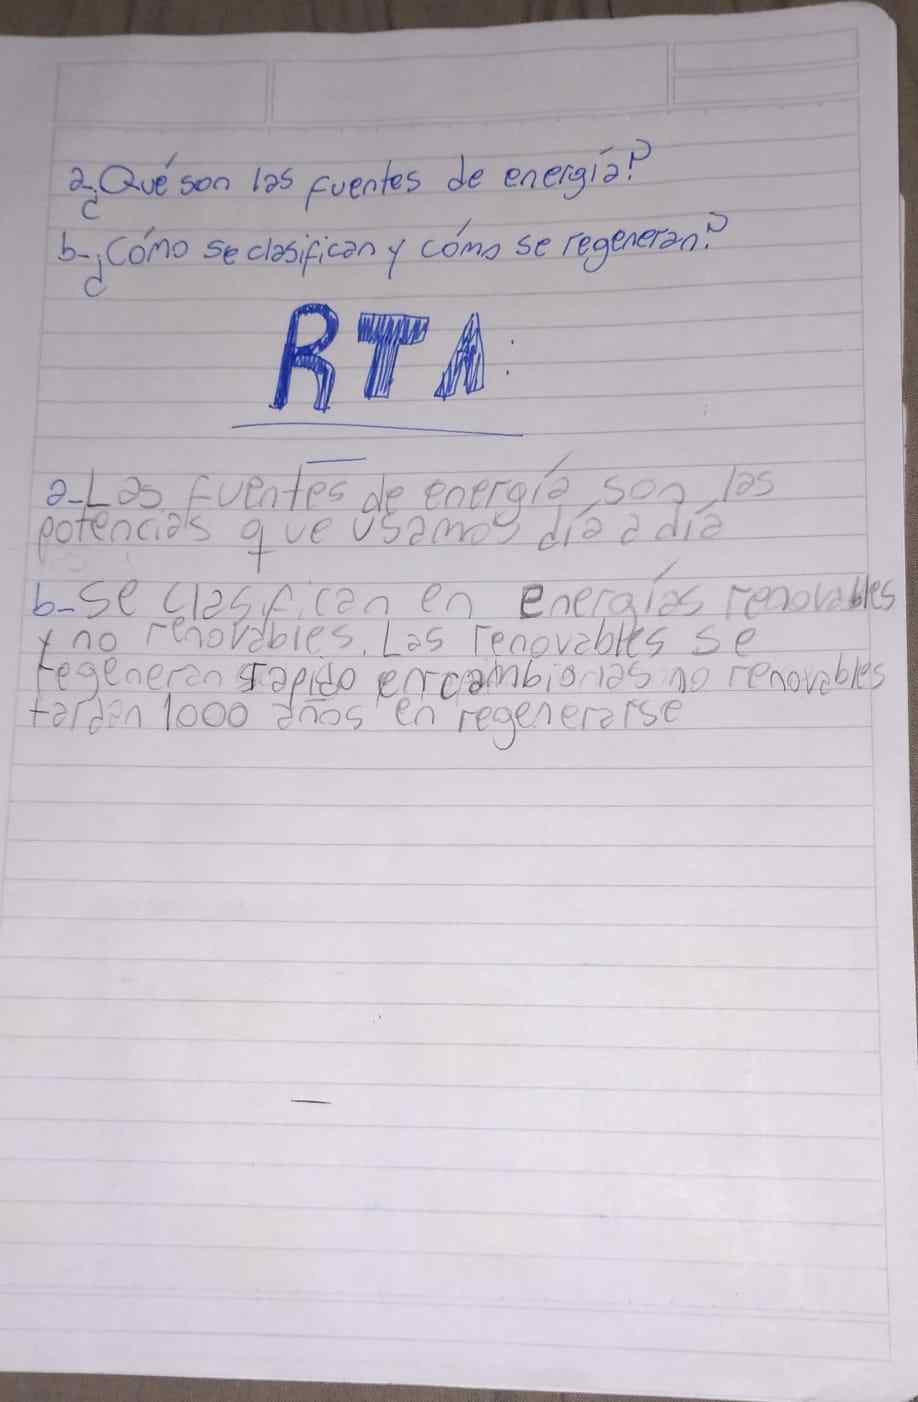 a. ¿Qué son las fuentes de energía?
b-¿Cómo se clasifican y cómo se regeneran?
RTA:
a-Las fuentes de energía son las
potencias que usamos día a día
b-Se clasifican en energías renovables
y no renovables. Las renovables se
regeneran rapido en cambio las no renovables
tardan 1000 años en regenerarse